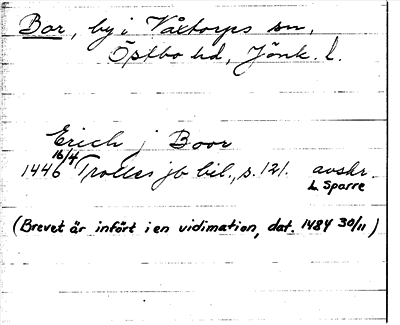 Bor, by i Våxtorps sn,
Östbo hd, Jönk. l.
Erich j Boor
1446 16/4 Trolles jb bil., s. 121. avskr.
L. Sparre
(Brevet är infört i en vidimation, dat. 1484 30/11)